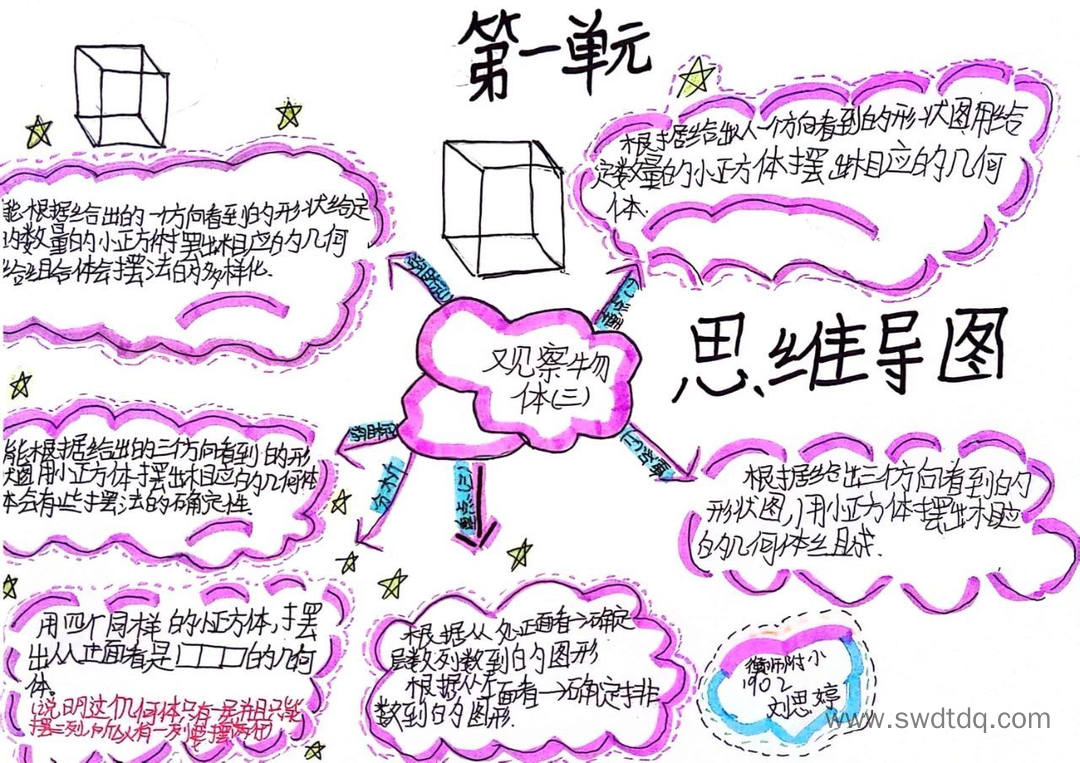 第一单元
思维导图
观察物
体(三)
根据给出从一个方向看到的形状图用给
定数量的小正方体摆出相应的几何
体.
能根据给出的一个方向看到的形状给定
的数量的小正方体摆出相应的几何
给组合体会摆法的多样化.
能根据给出的三个方向看到的形
状图用小正方体摆出相应的几何体
体会有些摆法的确定性
根据给出三个方向看到的
形状图,用小正方体摆出相应
的几何体组成.
用四个同样的小正方体,摆
出从正面看是的几何
体。
说明这个几何体只有一层并且只能
摆三列所以有一列摆两个
根据从正面看→确定
层数列数到的图形
根据从上面看→确定排
数到的图形.
分析
衡师附小
1902
刘思婷
www.swdtdq.com